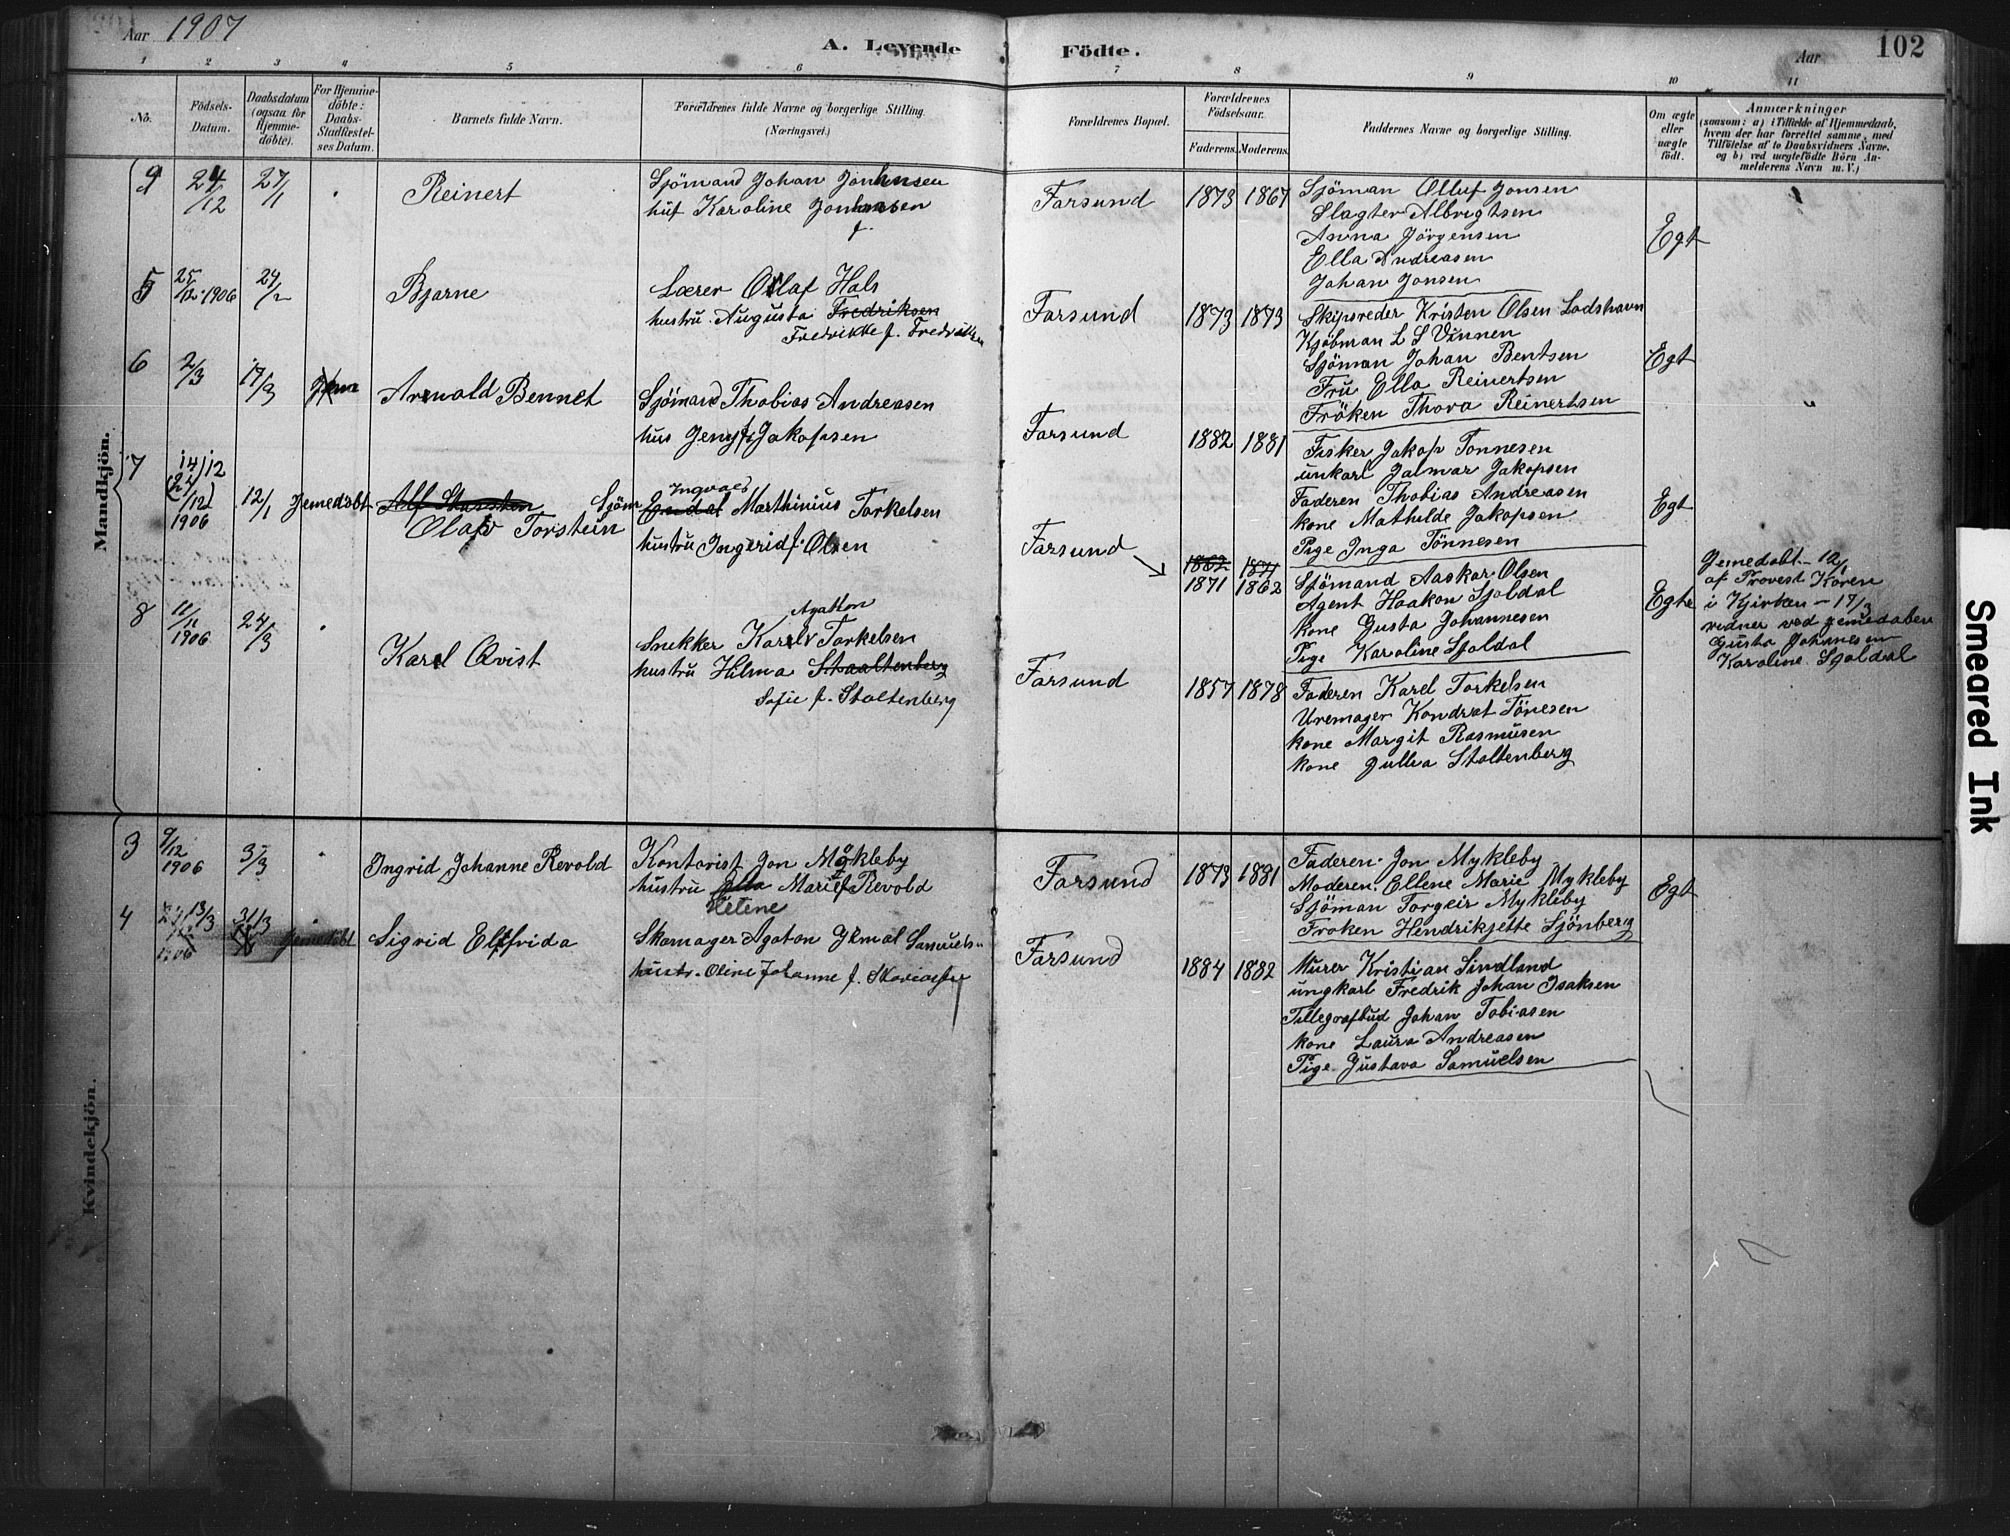 Aar 1907
A. Levende Födte.
Aar
102
1 2 3 4 5 6 7 8 9 10 11
No.
Födsels-
Datum.
Daabsdatum
(ogsaa for
Hjemme-
döbte).
For Hjemme-
döbte:
Daabs-
Stadfæstel-
ses Datum.
Barnets fulde Navn.
Forældrenes fulde Navne og borgerlige Stilling.
(Næringsvei.)
Forældrenes Bopæl.
Forældrenes
Födselsaar.
Faderens. Moderens.
Faddernes Navne og borgerlige Stilling.
Om ægte
eller
uægte
födt.
Anmærkninger
(saasom: a) i Tilfælde af Hjemmedaab,
hvem der har forrettet samme, med
Tilföielse af to Daabsvidners Navne,
og b) ved uægtefödte Börn An-
melderens Navn m. V.)
Mandkjön.
24/12 27/1
Reinert
Sjömand Johan
Karoline
Farsund
1873 1867
Sjöman Olluf Jonsen
Slagter Albrigtsen
Anna Jörgensen
Ella Andreasen
Johan Jonsen
Egt
5 25/12 1906 24/2
Bjarne
Lærer Olaf Hals
hustru Augusta Fredriksen
Fredrikke f. Fredriksen
Farsund
1873 1873
Skipsreder Kristen Olsen Lodshavn
Kjöbman L S Vinnen
Sjöman Johan Bentsen
Fru Ella Reinertsen
Fröken Thora Reinertsen
Egt
6 2/3 17/3
Arnold Bennet
Sjömand Thobias Andreasen
hus Jeny f. Jakopsen
Farsund
1882 1881
Fisker Jakop Tonnesen
unkarl Jalmar Jakopsen
Faderen Thobias Andreasen
kone Mathilde Jakopsen
Pige Inga Tönnesen
Egt
7 14/12
1906
12/1 Jemedøbt
Olaf Torstein
Sjöm Ingvald Marthinius Torkelsen
hustru Ingerid f. Olsen
Farsund
1862 1871
1871 1862
Sjömand Aaskar Olsen
Agent Haakon Sjoldal
kone Gusta Johannesen
Pige Karoline Sjoldal
Egte
Jemedøbt 12/1
af Provest Koren
i Kjirken - 17/3
vidner ved jemedaben
Gusta Johannesen
Karoline Sjoldal
8 11/11 1906 24/3
Karl Qvist
Agathon
Snekker Karl Torkelsen
hustru Hilma Staaltenberg
Sofie f. Stoltenberg
Farsund
1857 1878
Faderen Karel Torkelsen
Uremager Kondrat Tönesen
kone Margit Rasmusen
kone Jullea Stoltenberg
Kvindekjön.
3 9/12 1906 3/3
Ingrid Johanne Revold
Kontorist Jon Mykleby
hustru Marie f Revold
Helene
Farsund
1873 1881
Faderen Jon Mykleby
Moderen Ellene Marie Mykleby
Sjöman Torgeir Mykleby
Froken Hendrikjette Sjönberg
Egt
4 13/3
1906
31/3 Jemedøbt
Sigrid Elfrida
Skomager Agaton Jemal Samuels.
hustr. Oline Johanne f.
Farsund
1884 1882
Murer Kristian Sindland
ungkarl Fredrik Johan Isaksen
Tellegrafbud Johan Tobiasen
kone Laura Andreasen
Pige Gustava Samuelsen
Smeared Ink